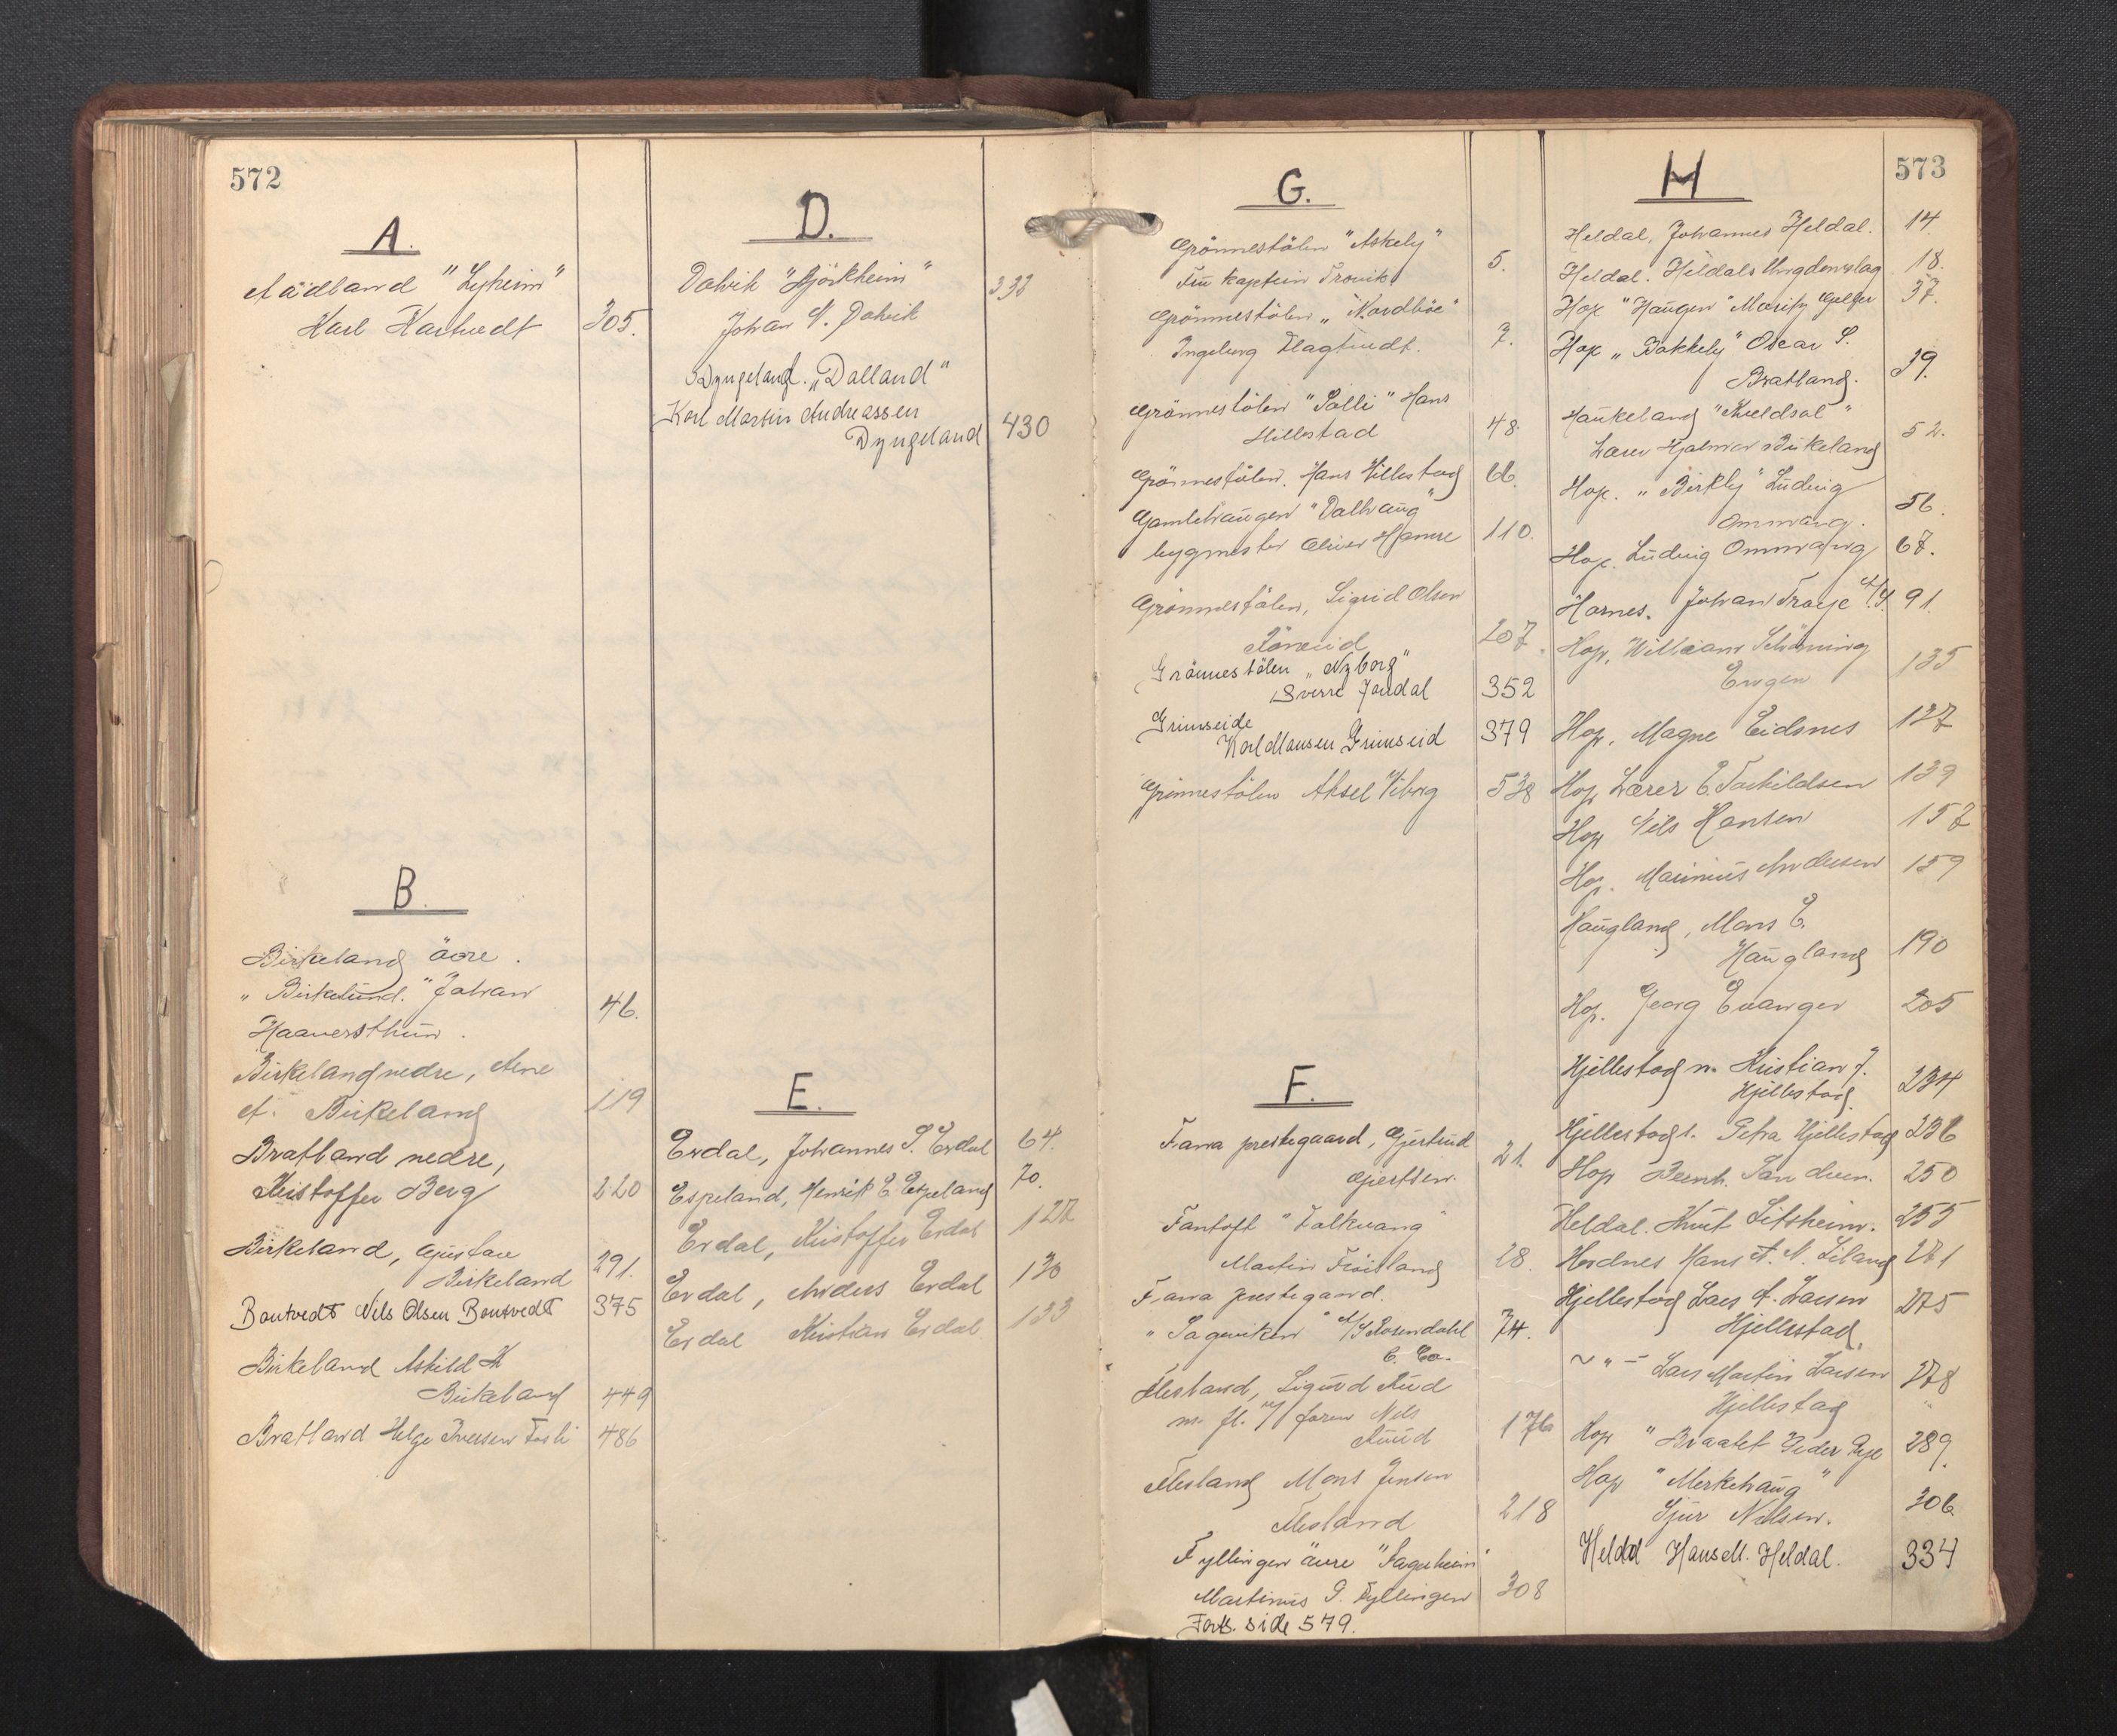 572
A.
Aadland "Lyheim"
Karl Hartvedt 305.
B.
Birkeland övre.
"Birkelund." Johan 46.
Haaversthun.
Birkeland nedre, Arne
A. Birkeland 119
Bratland nedre,
Kristoffer Berg 220
Birkeland, Gustav
Birkeland 291.
Bontvedt Nils Olsen Bontvedt 375
Birkeland Askild K
Birkeland 449
Bratland Helge Iversen 486
D.
Dalvik "Björkheim" 332
Johan N. Dalvik
Dyngeland. "Dalland"
Karl Martin Andreassen
Dyngeland 430
E.
Erdal, Johannes S. Erdal 64.
Espeland, Henrik E. Espeland 70.
Erdal, Kristoffer Erdal 122
Erdal, Anders Erdal 130
Erdal Kristian Erdal. 133
G.
Grönnestölen "Askely"
Fru kaptein 5.
Grönnestölen "Nordböe"
Ingeborg Flagtvedt. 7.
Grönnestölen "Solli" Hans
Hillestad 48
Grönnestölen. Hans Hillestad 66.
Gamlehaugen "Dalhaug"
bygmester Oliver Hamre 110.
Grönnestölen, Sigrid Olsen
207.
Grönnestölen "Nyborg"
Sverre Jondal 352
Grimseide
Karl Mausen Grimseid 379
Grönnestölen Aksel Viborg 538
F.
Fana prestegaard, Gjertrud
Gjertsen. 21.
Fantoft "Falkvang"
Martin Fröisland 28.
Fana prestegaard.
"Sageviken" A/S Rosendahl 74.
& Co.
Flesland, Sigurd Ruud
m. fl. v/ faren Nils
Ruud 176
Flesland Mons Jensen
Flesland 218
Fyllingen övre "Fagerheim"
Martinus P. Fyllingen 308
Forts. side 579.
573
H
Heldal, Johannes Heldal. 14.
Heldal. Heldals Ungdomslag 18.
Hop "Haugen" Moritz 37.
Hop "Bakkely" Oscar S.
Bratland. 39.
Haukeland "Kveldsol"
Lærer Hjalmar Birkeland 52.
Hop. "Birkly" Ludvig
Ommvang. 56.
Hop. Ludvig Ommvang 67.
Hornes. Johan Troye A/S. 91.
Hop, William Schönning
Engen 135
Hop, Magne Eidsnes 137
Hop Lærer E. Torkildsen 139
Hop Nils Hansen 157
Hop. Marinius Andersen 159
Haugland, Mons E.
Haugland 190
Hop. Georg Evanger 205
Hjellestad n. Kristian J.
Hjellestad. 234
Hjellestad s. Petra Hjellestad 236
Hop Bernh. Sandven. 250
Heldal. Knut Litsheim. 255
Hordnes Hans A. N. Liland 271
Hjellestad Lars A. Larsen 275
Hjellestad,
~ " – Lars Martin Larsen 278
Hjellestad
Hop "Braatet Peder Rye 289.
Hop "Merkehaug"
Sjur Nilsen. 306.
Heldal Hans M. Heldal. 334